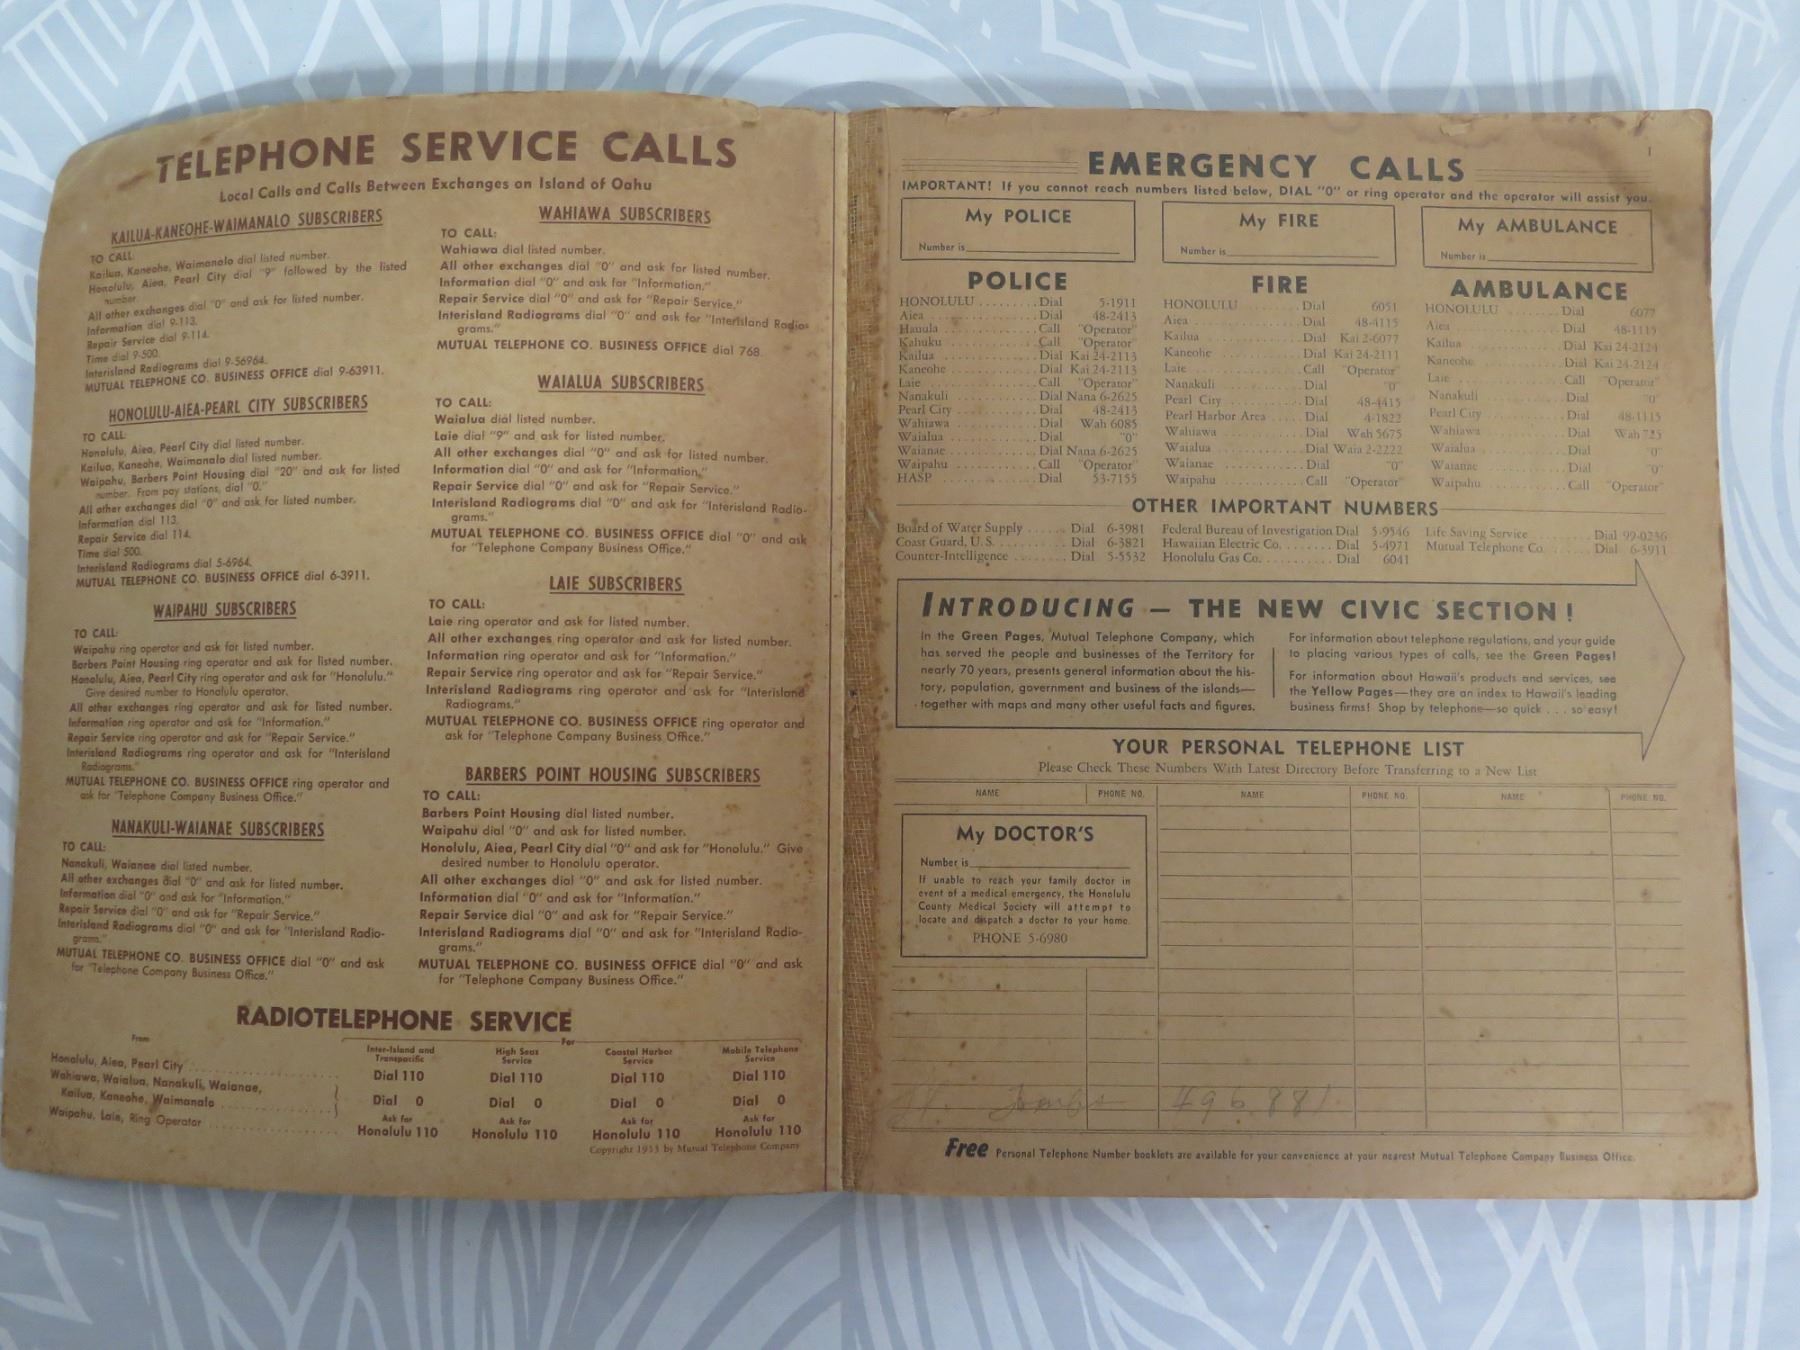 TELEPHONE SERVICE CALLS
Local Calls and Calls Between Exchanges on Island of Oahu
KAILUA-KANEOHE-WAIMANALO SUBSCRIBERS
TO CALL:
Kailua, Kaneohe, Waimanalo dial listed number.
Honolulu, Aiea, Pearl City dial "9" followed by the listed
number.
All other exchanges dial "0" and ask for listed number.
Information dial 9-113.
Repair Service dial 9-114.
Time dial 9-500.
Interisland Radiograms dial 9-56964.
MUTUAL TELEPHONE CO. BUSINESS OFFICE dial 9-63911.
HONOLULU-AIEA-PEARL CITY SUBSCRIBERS
TO CALL:
Honolulu, Aiea, Pearl City dial listed number.
Kailua, Kaneohe, Waimanalo dial listed number.
Waipahu, Barbers Point Housing dial "20" and ask for listed
number. From pay stations, dial "0."
All other exchanges dial "0" and ask for listed number.
Information dial 113.
Repair Service dial 114.
Time dial 500.
Interisland Radiograms dial 5-6964.
MUTUAL TELEPHONE CO. BUSINESS OFFICE dial 6-3911.
WAIPAHU SUBSCRIBERS
TO CALL:
Waipahu ring operator and ask for listed number.
Barbers Point Housing ring operator and ask for listed number.
Honolulu, Aiea, Pearl City ring operator and ask for "Honolulu."
Give desired number to Honolulu operator.
All other exchanges ring operator and ask for listed number.
Information ring operator and ask for "Information."
Repair Service ring operator and ask for "Repair Service."
Interisland Radiograms ring operator and ask for "Interisland
Radiograms."
MUTUAL TELEPHONE CO. BUSINESS OFFICE ring operator and
ask for "Telephone Company Business Office."
NANAKULI-WAIANAE SUBSCRIBERS
TO CALL:
Nanakuli, Waianae dial listed number.
All other exchanges dial "0" and ask for listed number.
Information dial "0" and ask for "Information."
Repair Service dial "0" and ask for "Repair Service."
Interisland Radiograms dial "0" and ask for "Interisland Radio-
grams."
MUTUAL TELEPHONE CO. BUSINESS OFFICE dial "0" and ask
for "Telephone Company Business Office."
WAHIAWA SUBSCRIBERS
TO CALL:
Wahiawa dial listed number.
All other exchanges dial "0" and ask for listed number.
Information dial "0" and ask for "Information."
Repair Service dial "0" and ask for "Repair Service."
Interisland Radiograms dial "0" and ask for "Interisland Radio-
grams."
MUTUAL TELEPHONE CO. BUSINESS OFFICE dial 768.
WAIALUA SUBSCRIBERS
TO CALL:
Waialua dial listed number.
Laie dial "9" and ask for listed number.
All other exchanges dial "0" and ask for listed number.
Information dial "0" and ask for "Information."
Repair Service dial "0" and ask for "Repair Service."
Interisland Radiograms dial "0" and ask for "Interisland Radio-
grams."
MUTUAL TELEPHONE CO. BUSINESS OFFICE dial "0" and ask
for "Telephone Company Business Office."
LAIE SUBSCRIBERS
TO CALL:
Laie ring operator and ask for listed number.
All other exchanges ring operator and ask for listed number.
Information ring operator and ask for "Information."
Repair Service ring operator and ask for "Repair Service."
Interisland Radiograms ring operator and ask for "Interisland
Radiograms."
MUTUAL TELEPHONE CO. BUSINESS OFFICE ring operator and
ask for "Telephone Company Business Office."
BARBERS POINT HOUSING SUBSCRIBERS
TO CALL:
Barbers Point Housing dial listed number.
Waipahu dial "0" and ask for listed number.
Honolulu, Aiea, Pearl City dial "0" and ask for "Honolulu." Give
desired number to Honolulu operator.
All other exchanges dial "0" and ask for listed number.
Information dial "0" and ask for "Information."
Repair Service dial "0" and ask for "Repair Service."
Interisland Radiograms dial "0" and ask for "Interisland Radio-
grams."
MUTUAL TELEPHONE CO. BUSINESS OFFICE dial "0" and ask
for "Telephone Company Business Office."
RADIOTELEPHONE SERVICE
From For
Inter-Island and Transpacific High Seas Service Coastal Harbor Service Mobile Telephone Service
Honolulu, Aiea, Pearl City Dial 110 Dial 110 Dial 110 Dial 110
Wahiawa, Waialua, Nanakuli, Waianae,
Kailua, Kaneohe, Waimanalo Dial 0 Dial 0 Dial 0 Dial 0
Waipahu, Laie, Ring Operator Ask for Honolulu 110 Ask for Honolulu 110 Ask for Honolulu 110 Ask for Honolulu 110
Copyright 1953 by Mutual Telephone Company
1
EMERGENCY CALLS
IMPORTANT! If you cannot reach numbers listed below, DIAL "0" or ring operator and the operator will assist you.
My POLICE
Number is
My FIRE
Number is
My AMBULANCE
Number is
POLICE
HONOLULU Dial 5-1911
Aiea Dial 48-2413
Hauula Call "Operator"
Kahuku Call "Operator"
Kailua Dial Kai 24-2113
Kaneohe Dial Kai 24-2113
Laie Call "Operator"
Nanakuli Dial Nana 6-2625
Pearl City Dial 48-2413
Wahiawa Dial Wah 6085
Waialua Dial "0"
Waianae Dial Nana 6-2625
Waipahu Call "Operator"
HASP Dial 53-7155
FIRE
HONOLULU Dial 6051
Aiea Dial 48-4115
Kailua Dial Kai 2-6077
Kaneohe Dial Kai 24-2111
Laie Call "Operator"
Nanakuli Dial "0"
Pearl City Dial 48-4415
Pearl Harbor Area Dial 4-1822
Wahiawa Dial Wah 5675
Waialua Dial Waia 2-2222
Waianae Dial "0"
Waipahu Call "Operator"
AMBULANCE
HONOLULU Dial 6077
Aiea Dial 48-1115
Kailua Dial Kai 24-2124
Kaneohe Dial Kai 24-2124
Laie Call "Operator"
Nanakuli Dial "0"
Pearl City Dial 48-1115
Wahiawa Dial Wah 725
Waialua Dial "0"
Waianae Dial "0"
Waipahu Call "Operator"
OTHER IMPORTANT NUMBERS
Board of Water Supply Dial 6-3981
Coast Guard, U.S. Dial 6-3821
Counter-Intelligence Dial 5-5532
Federal Bureau of Investigation Dial 5-9546
Hawaiian Electric Co. Dial 5-4971
Honolulu Gas Co. Dial 6041
Life Saving Service Dial 99-0236
Mutual Telephone Co. Dial 6-3911
INTRODUCING — THE NEW CIVIC SECTION!
In the Green Pages, Mutual Telephone Company, which
has served the people and businesses of the Territory for
nearly 70 years, presents general information about the his-
tory, population, government and business of the islands—
together with maps and many other useful facts and figures.
For information about telephone regulations, and your guide
to placing various types of calls, see the Green Pages!
For information about Hawaii's products and services, see
the Yellow Pages—they are an index to Hawaii's leading
business firms! Shop by telephone—so quick . . . so easy!
YOUR PERSONAL TELEPHONE LIST
Please Check These Numbers With Latest Directory Before Transferring to a New List
NAME PHONE NO. NAME PHONE NO. NAME PHONE NO.
My DOCTOR'S
Number is
If unable to reach your family doctor in
event of a medical emergency, the Honolulu
County Medical Society will attempt to
locate and dispatch a doctor to your home.
PHONE 5-6980
496881
Free Personal Telephone Number booklets are available for your convenience at your nearest Mutual Telephone Company Business Office.